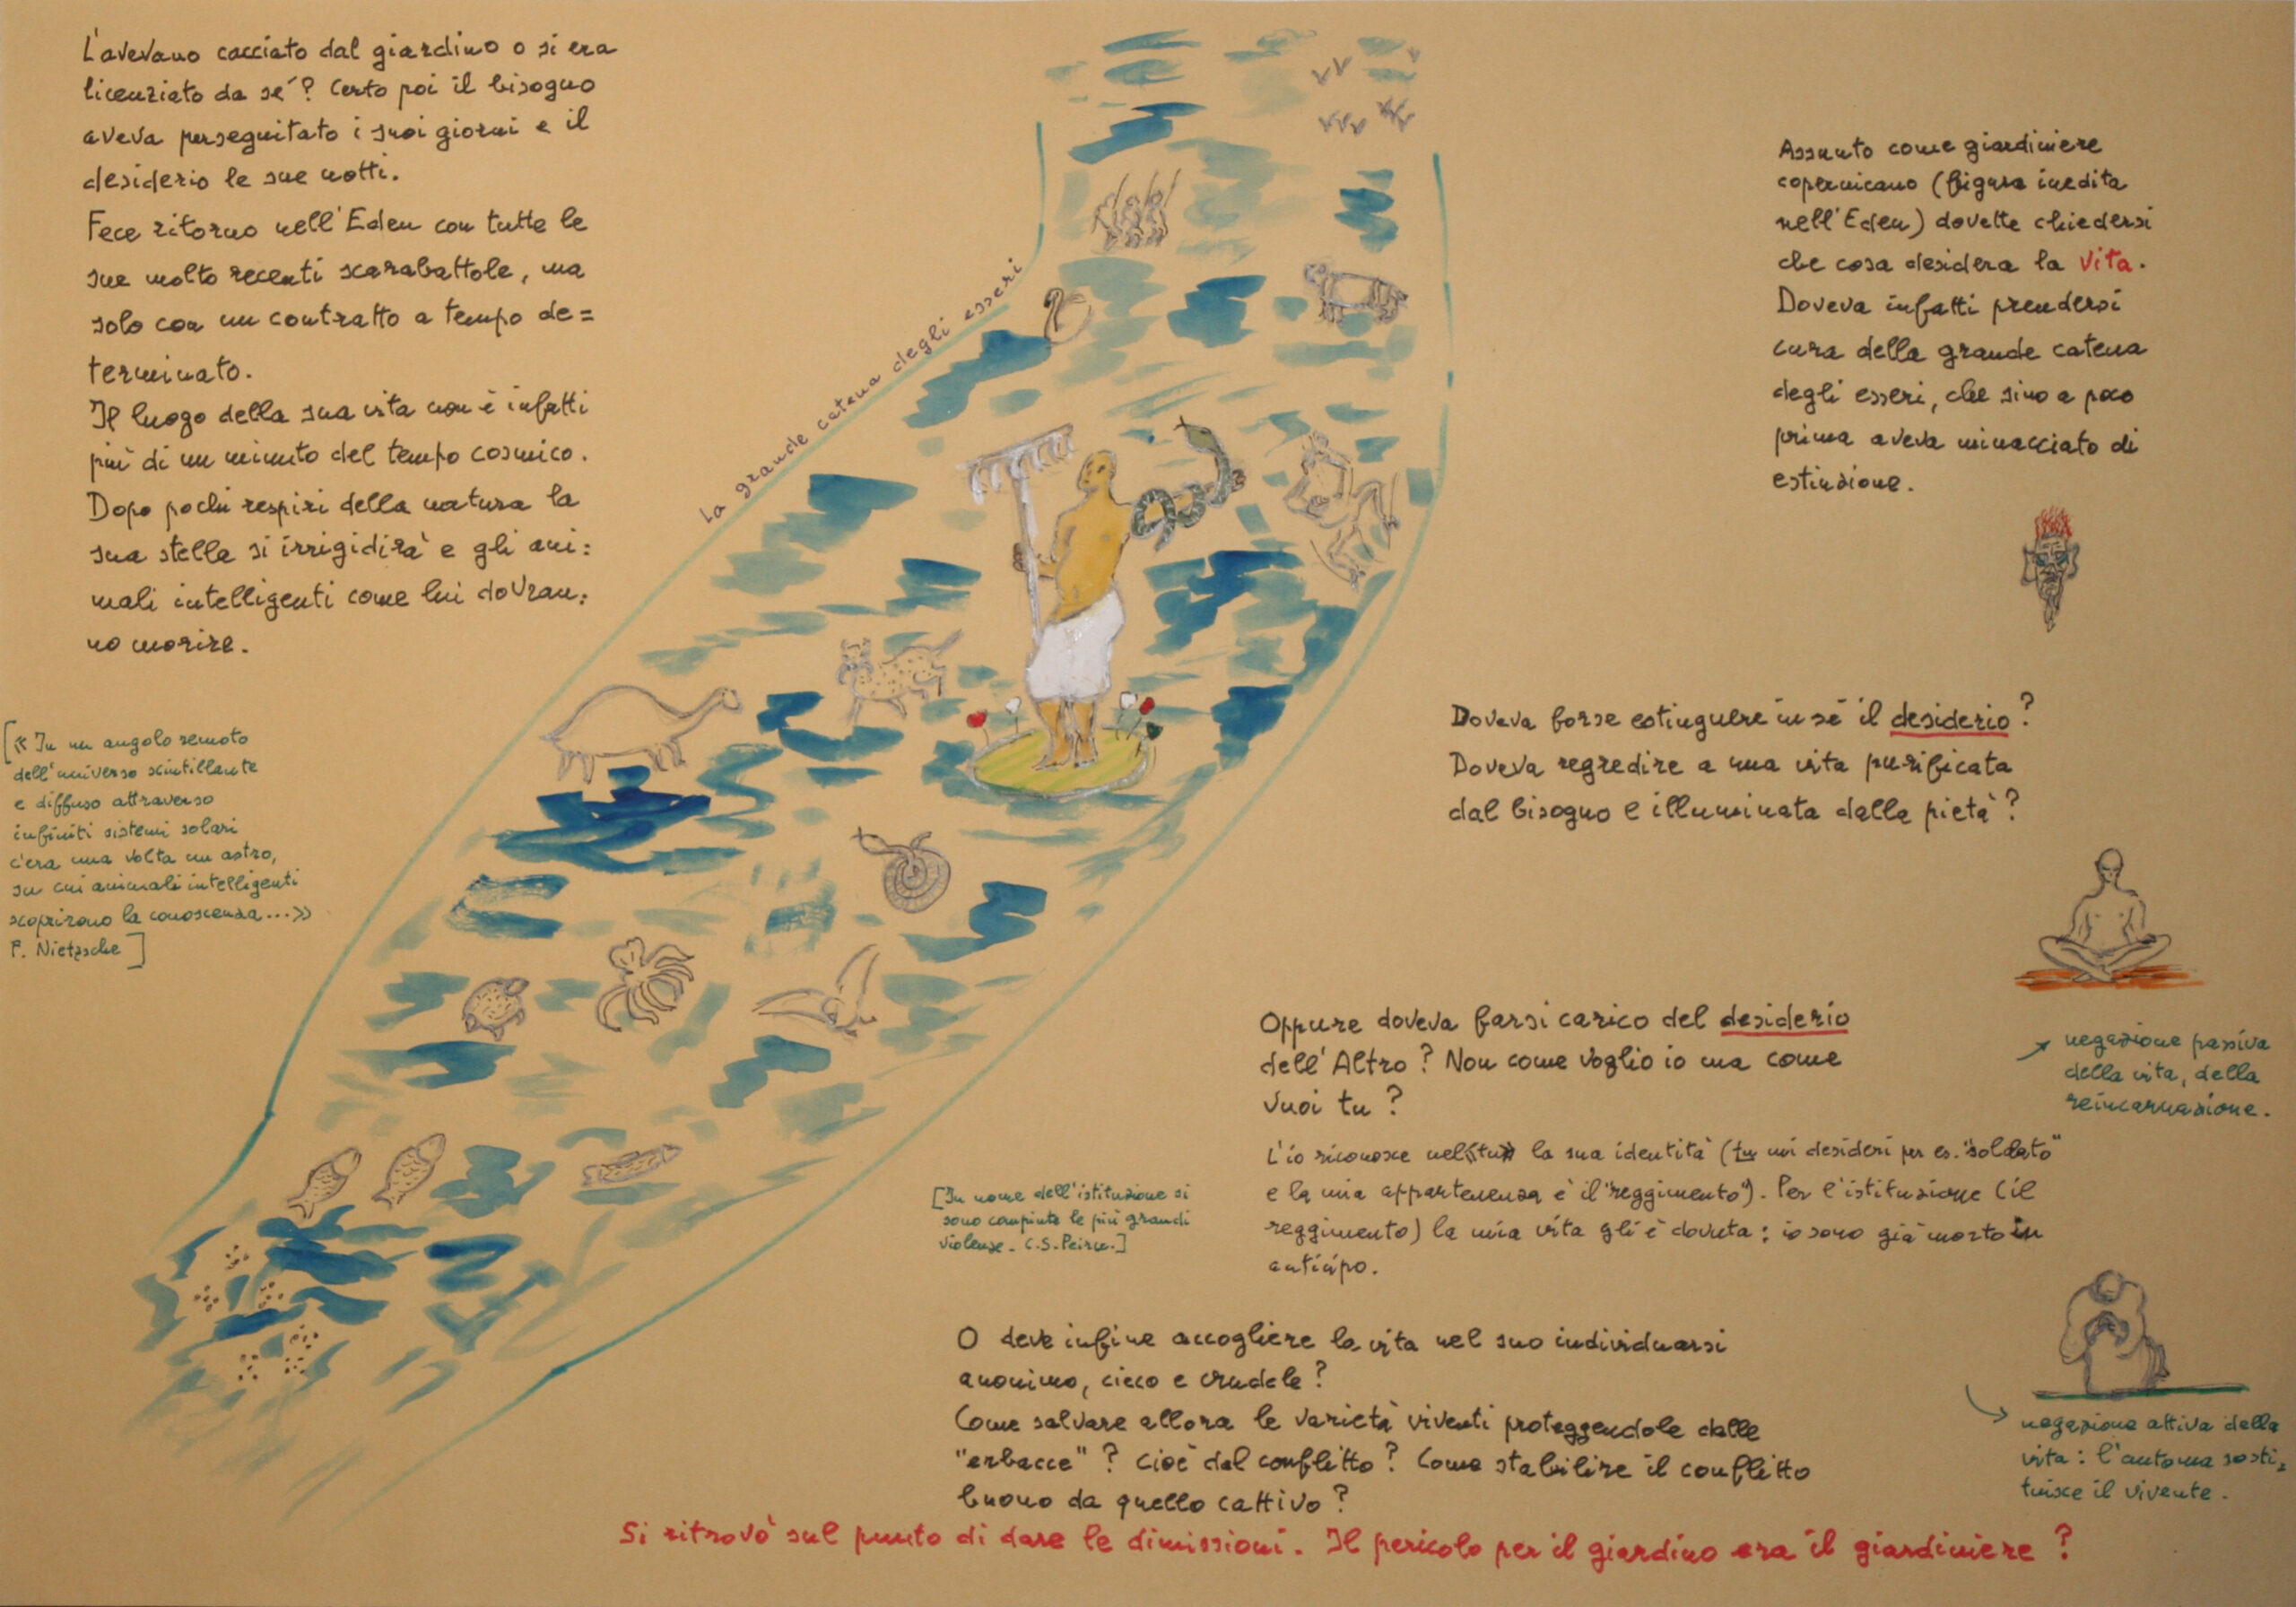 L'avevano cacciato dal giardino o si era
licenziato da sé? Certo poi il bisogno
aveva perseguitato i suoi giorni e il
desiderio le sue notti.
Fece ritorno nell'Eden con tutte le
sue molto recenti scarabattole, ma
solo con un contratto a tempo de=
terminato.
Il luogo della sua vita non è infatti
più di un minuto del tempo cosmico.
Dopo pochi respiri della natura la
sua stella si irrigidirà e gli ani:
mali intelligenti come lui dovran:
no morire.
[« In un angolo remoto
dell'universo scintillante
e diffuso attraverso
infiniti sistemi solari
c'era una volta un astro,
su cui animali intelligenti
scoprirono la conoscenza...»
F. Nietzsche]
La grande catena degli esseri
Assunto come giardiniere
copernicano (figura inedita
nell'Eden) dovette chiedersi
che cosa desidera la vita.
Doveva infatti prendersi
cura della grande catena
degli esseri, che sino a poco
prima aveva minacciato di
estinzione.
Doveva forse estinguere in sé il desiderio?
Doveva regredire a una vita purificata
dal bisogno e illuminata dalla pietà?
negazione passiva
della vita, della
reincarnazione.
Oppure doveva farsi carico del desiderio
dell'Altro? Non come voglio io ma come
vuoi tu?
L'io riconosce nel «tu» la sua identità (tu mi desideri per es. "soldato"
e la mia appartenenza è il "reggimento"). Per l'istituzione (il
reggimento) la mia vita gli è dovuta: io sono già morto in
anticipo.
[In nome dell'istituzione si
sono compiute le più grandi
violenze. C.S. Peirce.]
negazione attiva della
vita: l'automa sosti=
tuisce il vivente.
O deve infine accogliere la vita nel suo individuarsi
anonimo, cieco e crudele?
Come salvare allora le varietà viventi proteggendole dalle
"erbacce"? Cioè dal conflitto? Come stabilire il conflitto
buono da quello cattivo?
Si ritrovò sul punto di dare le dimissioni. Il pericolo per il giardino era il giardiniere?